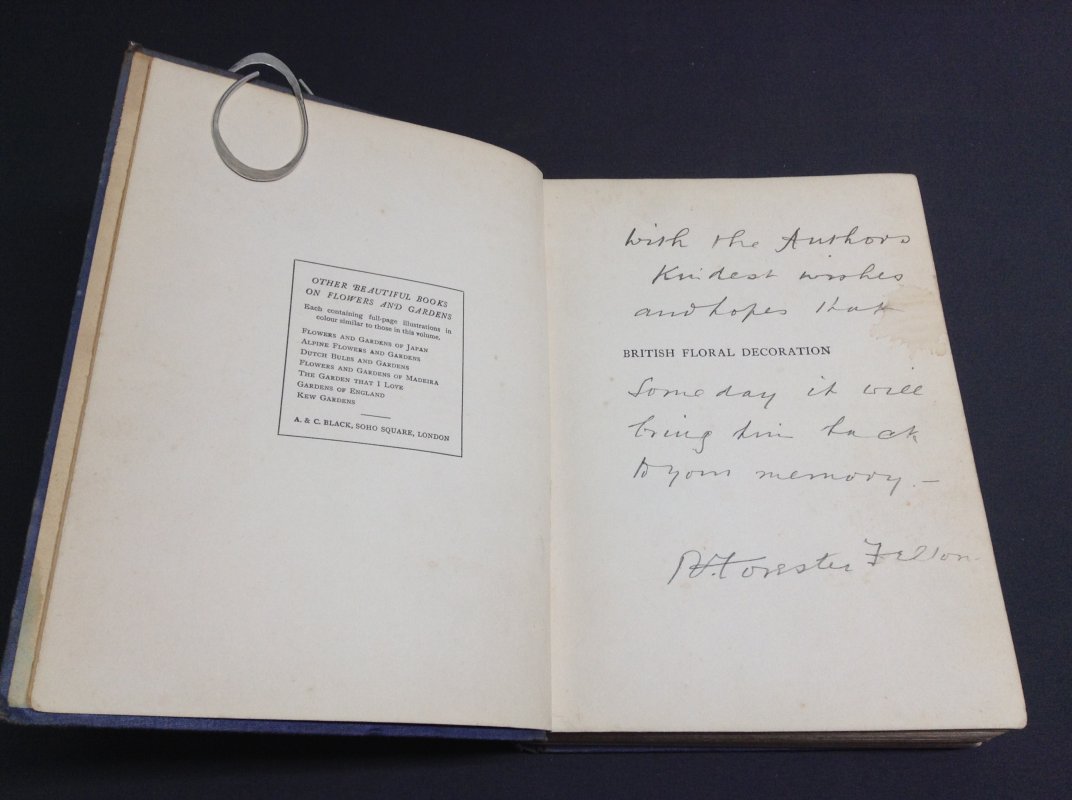 OTHER BEAUTIFUL BOOKS
ON FLOWERS AND GARDENS
Each containing full-page illustrations in
colour similar to those in this volume.
FLOWERS AND GARDENS OF JAPAN
ALPINE FLOWERS AND GARDENS
DUTCH BULBS AND GARDENS
FLOWERS AND GARDENS OF MADEIRA
THE GARDEN THAT I LOVE
GARDENS OF ENGLAND
KEW GARDENS
A. & C. BLACK, SOHO SQUARE, LONDON
With the Authors
Kindest wishes
and hopes that
BRITISH FLORAL DECORATION
Some day it will
bring him back
to your memory. —
R. Forester Felton